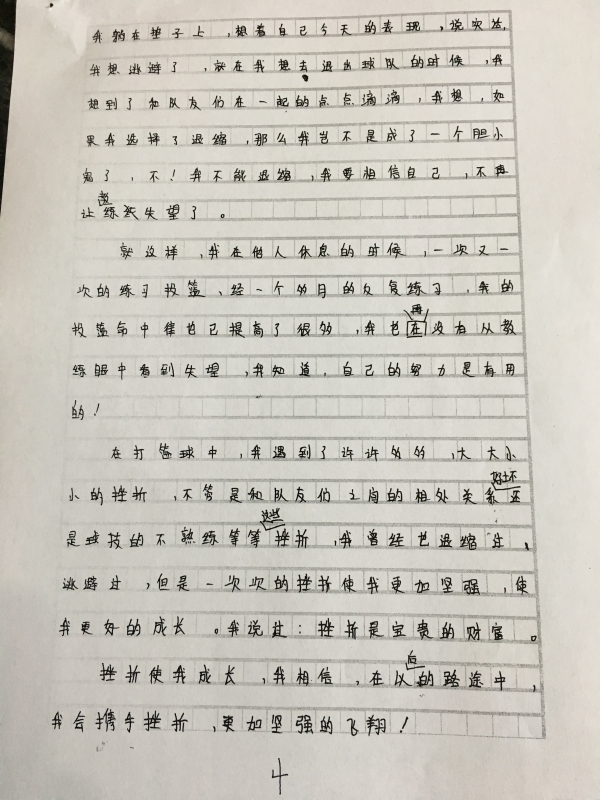 我躺在垫子上,想着自己今天的表现,说实然,
我想逃避了,就在我想去退出球队的时候,我
想到了和队友们在一起的点点滴滴,我想,如
果我选择了退缩,那么我岂不是成了一个胆小
鬼了,不!我不能退缩,我要相信自己,不再
教
让练练失望了。
就这样,我在他人休息的时候,一次又一
次的练习投篮、经一个多月的反复练习,我的
再
投篮命中律也已提高了很多,我也在没有从教
练眼中看到失望,我知道,自己的努力是有用
的!
在打篮球中,我遇到了许许多多,大大小
好坏
小的挫折,不管是和队友们之间的相处关系还
这些
是球技的不熟练等等挫折,我曾经也退缩过、
逃避过,但是一次次的挫折使我更加坚强,使
我更好的成长。我说过:挫折是宝贵的财富。
后
挫折使我成长,我相信,在以的路途中,
我会携手挫折,更加坚强的飞翔!
4